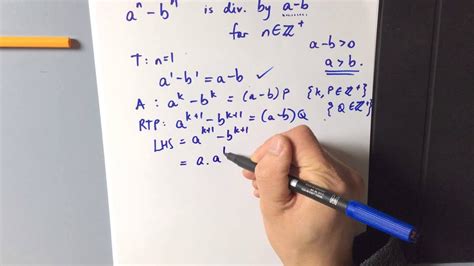 aⁿ - bⁿ is div. by a-b
for n∈ℤ⁺
a-b>0
a>b.
T: n=1
a¹-b¹ = a-b ✓
A: aᵏ-bᵏ = (a-b)P {k,P∈ℤ⁺}
RTP: aᵏ⁺¹-bᵏ⁺¹ = (a-b)Q {Q∈ℤ⁺}
LHS = aᵏ⁺¹-bᵏ⁺¹
= a.a